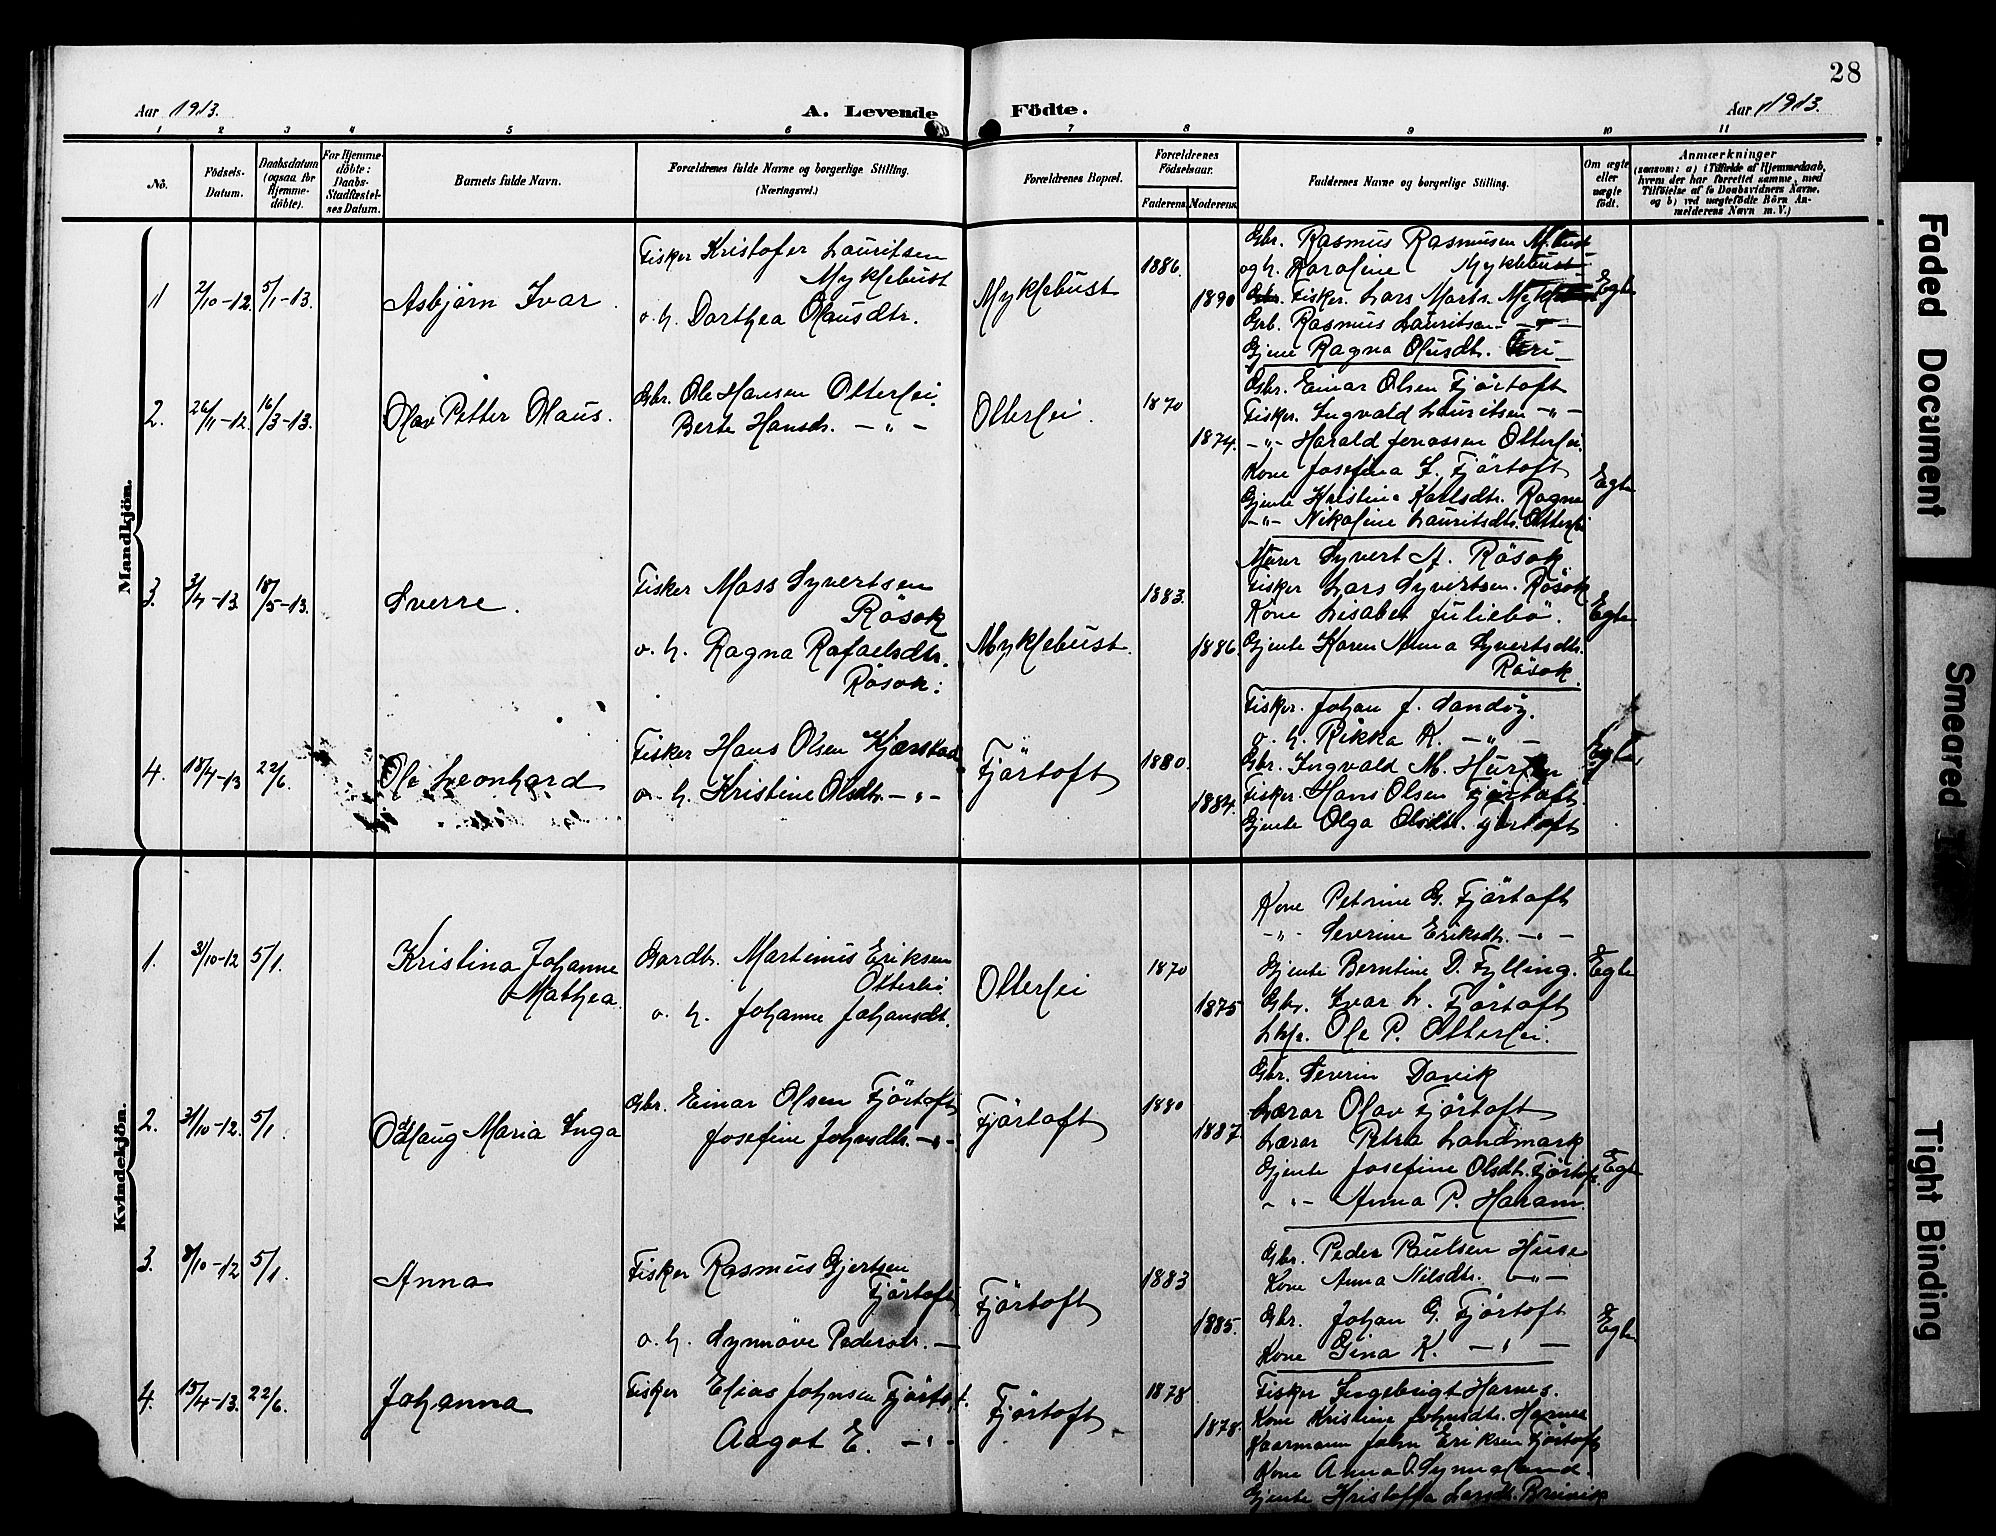 28
Aar 1913.
A. Levende Födte.
Aar 1913.
1 2 3 4 5 6 7 8 9 10 11
No.
Födsels-
Datum.
Daabsdatum
(ogsaa for
Hjemme-
döbte).
For Hjemme-
döbte:
Daabs-
Stadfæstel-
ses Datum.
Barnets fulde Navn.
Forældrenes fulde Navne og borgerlige Stilling.
(Næringsvei.)
Forældrenes Bopæl.
Forældrenes
Födselsaar.
Faderens. Moderens.
Faddernes Navne og borgerlige Stilling.
Om ægte
eller
uægte
födt.
Anmærkninger
(saasom: a) i Tilfælde af Hjemmedaab,
hvem der har forrettet samme, med
Tilföielse af to Daabsvidners Navne,
og b) ved uægtefödte Börn An-
melderens Navn m. V.)
Mandkjön.
1 2/10-12. 5/1-13.
Asbjörn Ivar
Fisker Kristofer Lauritsen
Myklebust
o. h. Dorthea Olausdtr.
Myklebust
1886.
1890
Gbr. Rasmus Rasmusen M.bust
og h. Karoline Myklebust
Fisker. Lars Marts. Myklebust
Grb. Rasmus Lauritsen - " -
Gjente Ragna Olusdtr.
Egte
2. 26/11-12. 16/3-13.
Olav Petter Olaus.
Gbr. Ole Hansen Otterlei.
Berte Hansdr. - " -
Otterlei.
1870
1874.
Gbr. Einar Olsen Fjörtoft
Fisker. Ingvald Lauritsen - " -
- " - Harald Jonassen Otterlei.
Kone Josefina J. Fjörtoft
Gjente Kristine Karlsdtr. Rogne
- " - Nikoline Lauritsdtr. Otterlei
Egte
3. 3/4-13. 18/5-13.
Sverre.
Fisker Mass Syvertsen
Rösok
o. h. Ragna Rafaelsdtr.
Rösok.
Myklebust.
1883.
1886
Murer Syvert A. Rösok
Fisker Lars Syvertsen. Rösok
Kone Lisabet Juliebö.
Gjente Karen Anna Syvertsdtr.
Rösok.
Egte
4. 18/4-13 22/6.
Ole Leonhard
Fisker Hans Olsen Kjærstad
o. h. Kristine Olsdtr. - " -
Fjörtoft
1880.
1884.
Fisker. Johan J. Sandöy.
o. h. Rikka K. - " -
Gbr. Ingvald M.
Fisker. Hans Olsen Fjörtoft.
Gjente Olga Olsdtr. Fjörtoft
Egte
Kvindekjön.
1. 31/10-12 5/1.
Kristina Johanne
Mathea.
Gardbr. Martinus Eriksen
Otterlei
o. h. Johanne Johansdtr.
Otterlei
1870
1875
Kone Petrine G. Fjörtoft
- " - Severine Eriksdtr. - " -
Gjente Berntine D. Fylling.
Gbr. Ivar L. Fjörtoft
Ole P. Otterlei.
Egte
2. 31/10-12. 5/1.
Oddlaug Maria Inga
Gbr. Einar Olsen Fjörtoft
Josefine Johnsdtr. - " -
Fjörtoft
1880
1887.
Gbr. Severin Davik
Lærer Olav Fjörtoft
Lærer Petra Landmark
Gjente Josefine Olsdtr. Fjörtoft.
- " - Anna P. Haram.
Egte
3. 8/10-12 5/1.
Anna
Fisker Rasmus Gjertsen
Fjörtoft
o. h. Synnöve Pedersdtr. -
Fjörtoft
1883
1885.
Gbr. Peder Paulsen Huse
Kone Anna Nilsdtr. - " -
Gbr. Johan G. Fjörtoft
Kone Gina K. - " -
Egte
4. 15/4-13. 22/6.
Johanna
Fisker Elias Johnsen Fjörtoft.
Aagot E. - " -
Fjörtoft.
1878
1878.
Fisker Ingebrigt Harnes.
Kone Kristine Johnsdtr. Harnes
Kaarmann John Eriksen Fjörtoft
Kone Anna O. Synnaland.
Gjente Kristoffa Larsdt. Breivik
Faded Document
Smeared
Tight Binding